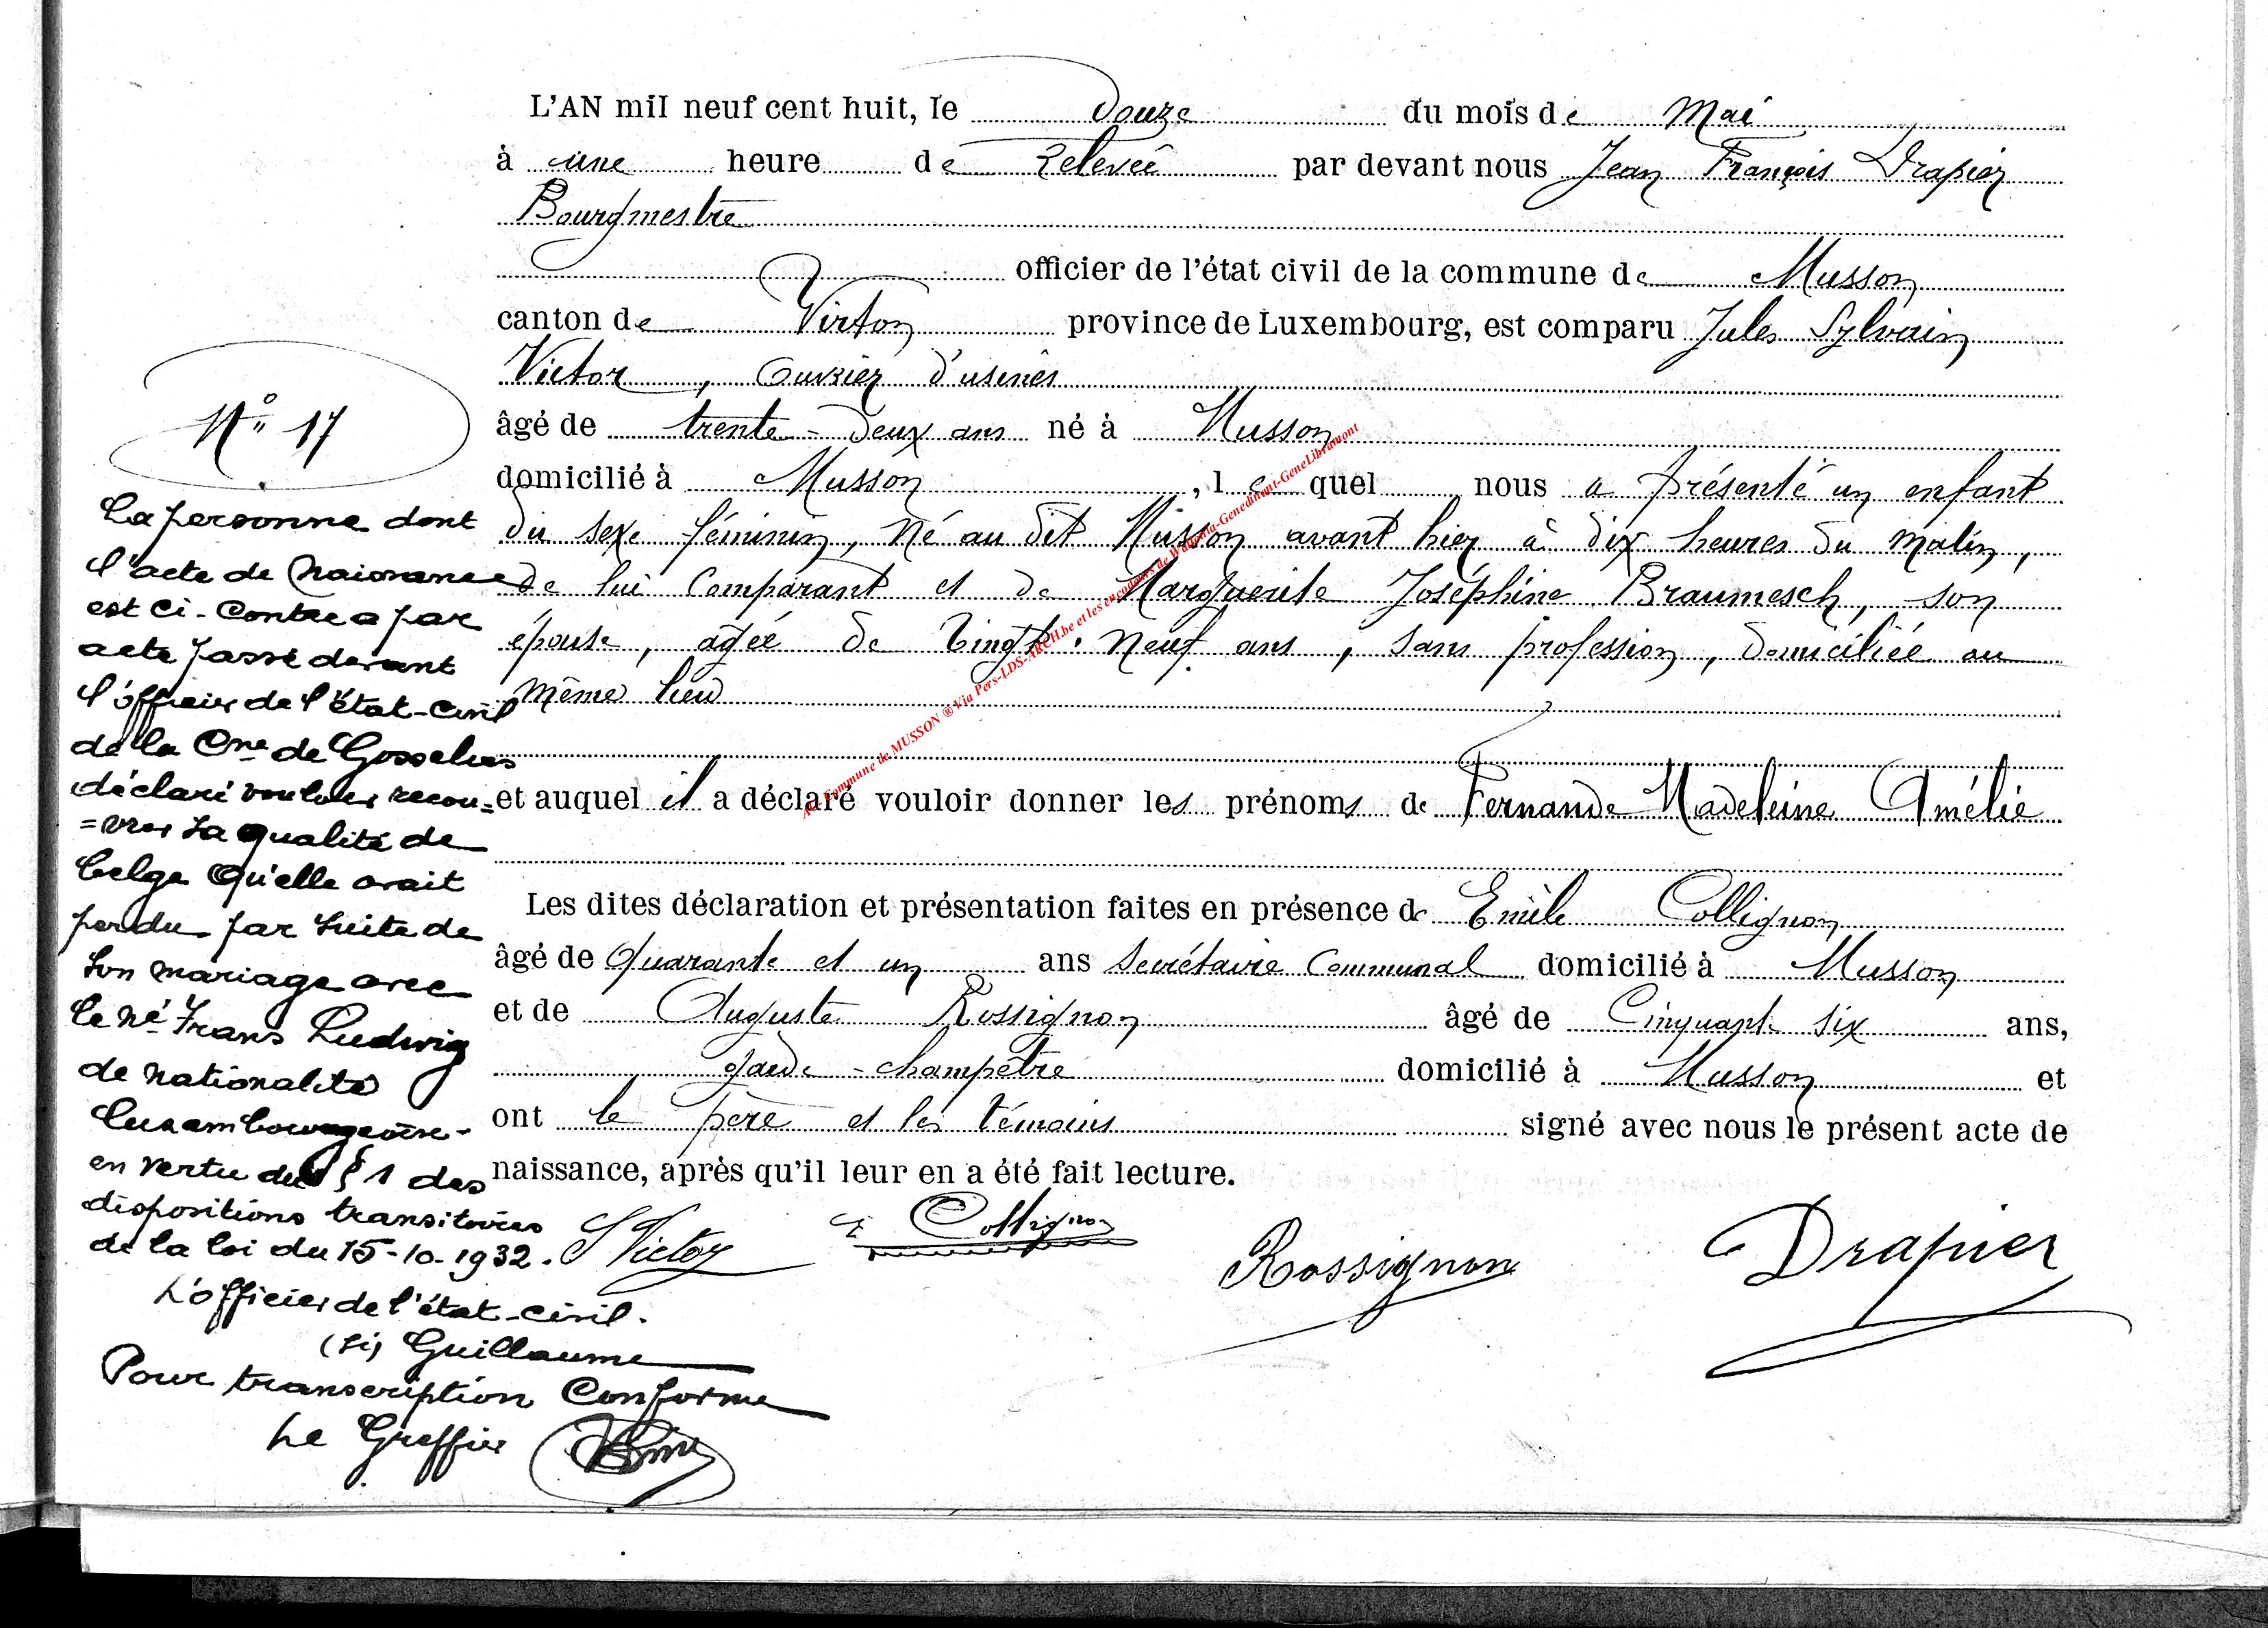 L'AN mil neuf cent huit, le douze du mois de Mai
à une heure de relevée par devant nous Jean François Drapier
Bourgmestre
officier de l'état civil de la commune de Musson
canton de Virton province de Luxembourg, est comparu Jules Sylvain
Victor, ouvrier d'usines
âgé de trente-deux ans né à Musson
domicilié à Musson, lequel nous a présenté un enfant
du sexe féminin, né au dit Musson avant hier à dix heures du matin,
de lui comparant et de Marguerite Joséphine Braumesch, son
épouse, agée de vingt-neuf ans, sans profession, domiciliée au
même lieu
et auquel il a déclaré vouloir donner les prénoms de Fernande Madeleine Amélie
Les dites déclaration et présentation faites en présence de Emile Collignon
âgé de quarante et un ans secrétaire communal domicilié à Musson
et de Auguste Rossignon âgé de cinquante six ans,
garde-champêtre domicilié à Musson et
ont le père et les témoins signé avec nous le présent acte de
naissance, après qu'il leur en a été fait lecture.
J Victor E Collignon Rossignon Drapier
N° 17
La personne dont
l'acte de naissance
est ci-contre a par
acte passé devant
l'officier de l'état-civil
de la Cne de Gosselies
déclaré vouloir recou=
=vrer sa qualité de
belge qu'elle avait
perdu par suite de
son mariage avec
le né Frans Ludwig
de nationalité
luxembourgeoise-
en vertu du § 1 des
dispositions transitoires
de la loi du 15-10-1932.
L'officier de l'état-civil.
(si) Guillaume
Pour transcription Conforme
Le Greffier
Adm Commune de MUSSON ® Via Pers-LDS-ARCH.be et les encodeurs de Wallonia-Genedinant-GeneLibramont